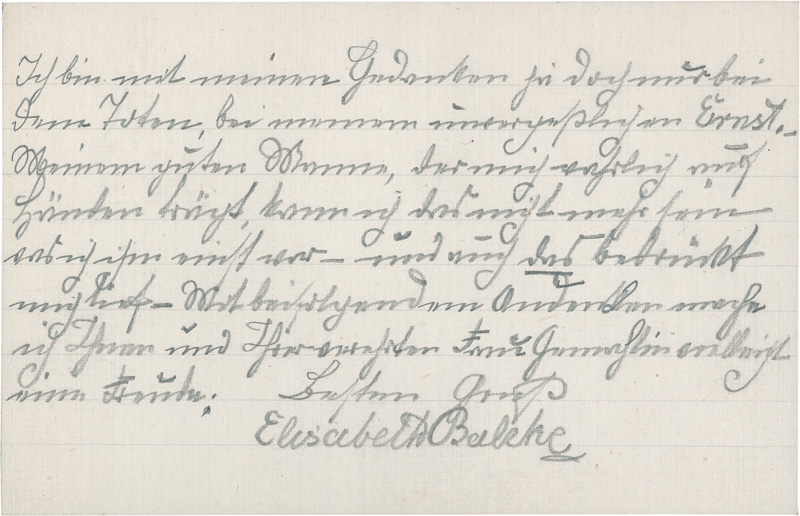 Ich bin mit meinen Gedanken ja doch nur bei
dem Toten, bei meinem unvergeßlichen Ernst. –
Meinem guten Manne, der mich wahrlich auf
Händen trägt, kann ich das nicht mehr sein
was ich ihm einst war – und auch das bedrückt
mich tief – Mit beifolgendem Andenken mache
ich Ihnen und Ihrer verehrten Frau Gemahlin vielleicht
eine Freude. Besten Gruß
Elisabeth Balcke